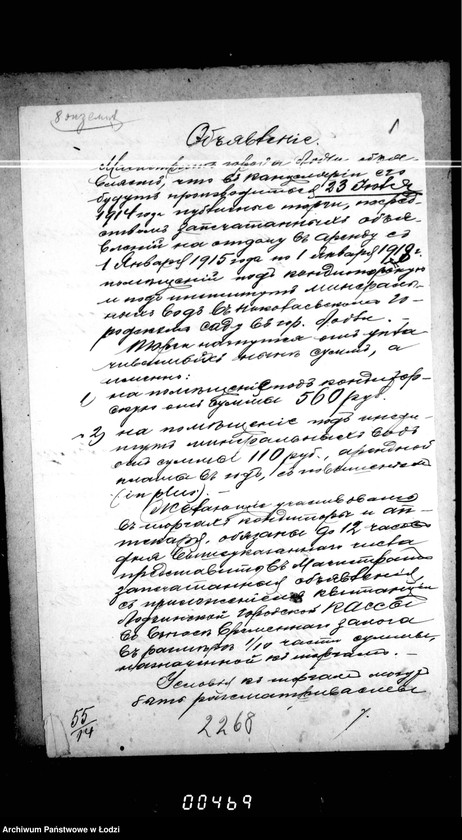 8 экземпл
1
Объявленіе.
Магистратъ города Лодзи объяв-
ляетъ, что въ канцеляріи его
будутъ производиться 23 Іюня
1914 года публичные торги, посред-
ствомъ запечатанныхъ объя-
вленій на отдачу въ аренду съ
1 Января 1915 года по 1 Января 1918 г.
помѣщеній подъ кондиторскую
и подъ институтъ минераль-
ныхъ водъ въ Николаевскомъ го-
родскомъ саду въ гор. Лодзи. —
Торги начнутся отъ упла-
чиваемыхъ нынѣ суммъ, а
именно:
1) на помѣщеніе подъ кондитор-
скую отъ суммы 560 руб.
2) на помѣщеніе подъ инсти-
тутъ минеральныхъ водъ
отъ суммы 110 руб., арендной
платы въ годъ, съ повышеніемъ
(in plus). —
Желающіе участвовать
въ торгахъ кондиторы и ап-
текаря, обязаны до 12 часовъ
дня вышеуказаннаго числа
представить въ Магистратъ
запечатанныя объявленія
съ приложеніемъ квитанціи
Лодзинской Городской Кассы
во взносѣ временнаго залога
въ размѣрѣ 1/10 части суммы,
назначенной къ торгамъ. —
Условія къ торгамъ могутъ
быть разсматриваемы
55/14
2268
00469
Archiwum Państwowe w Łodzi